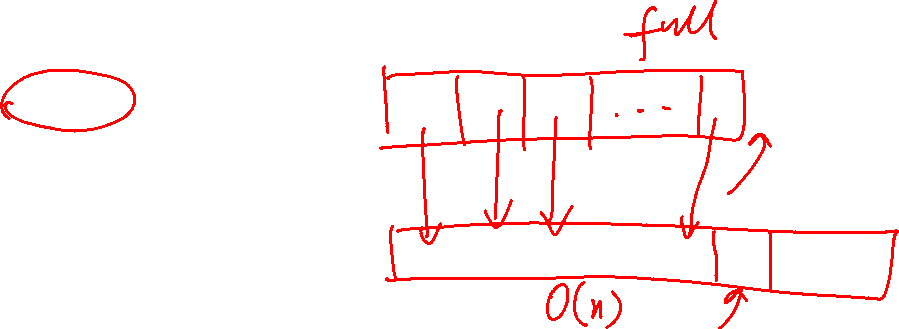 full
...
O(n)